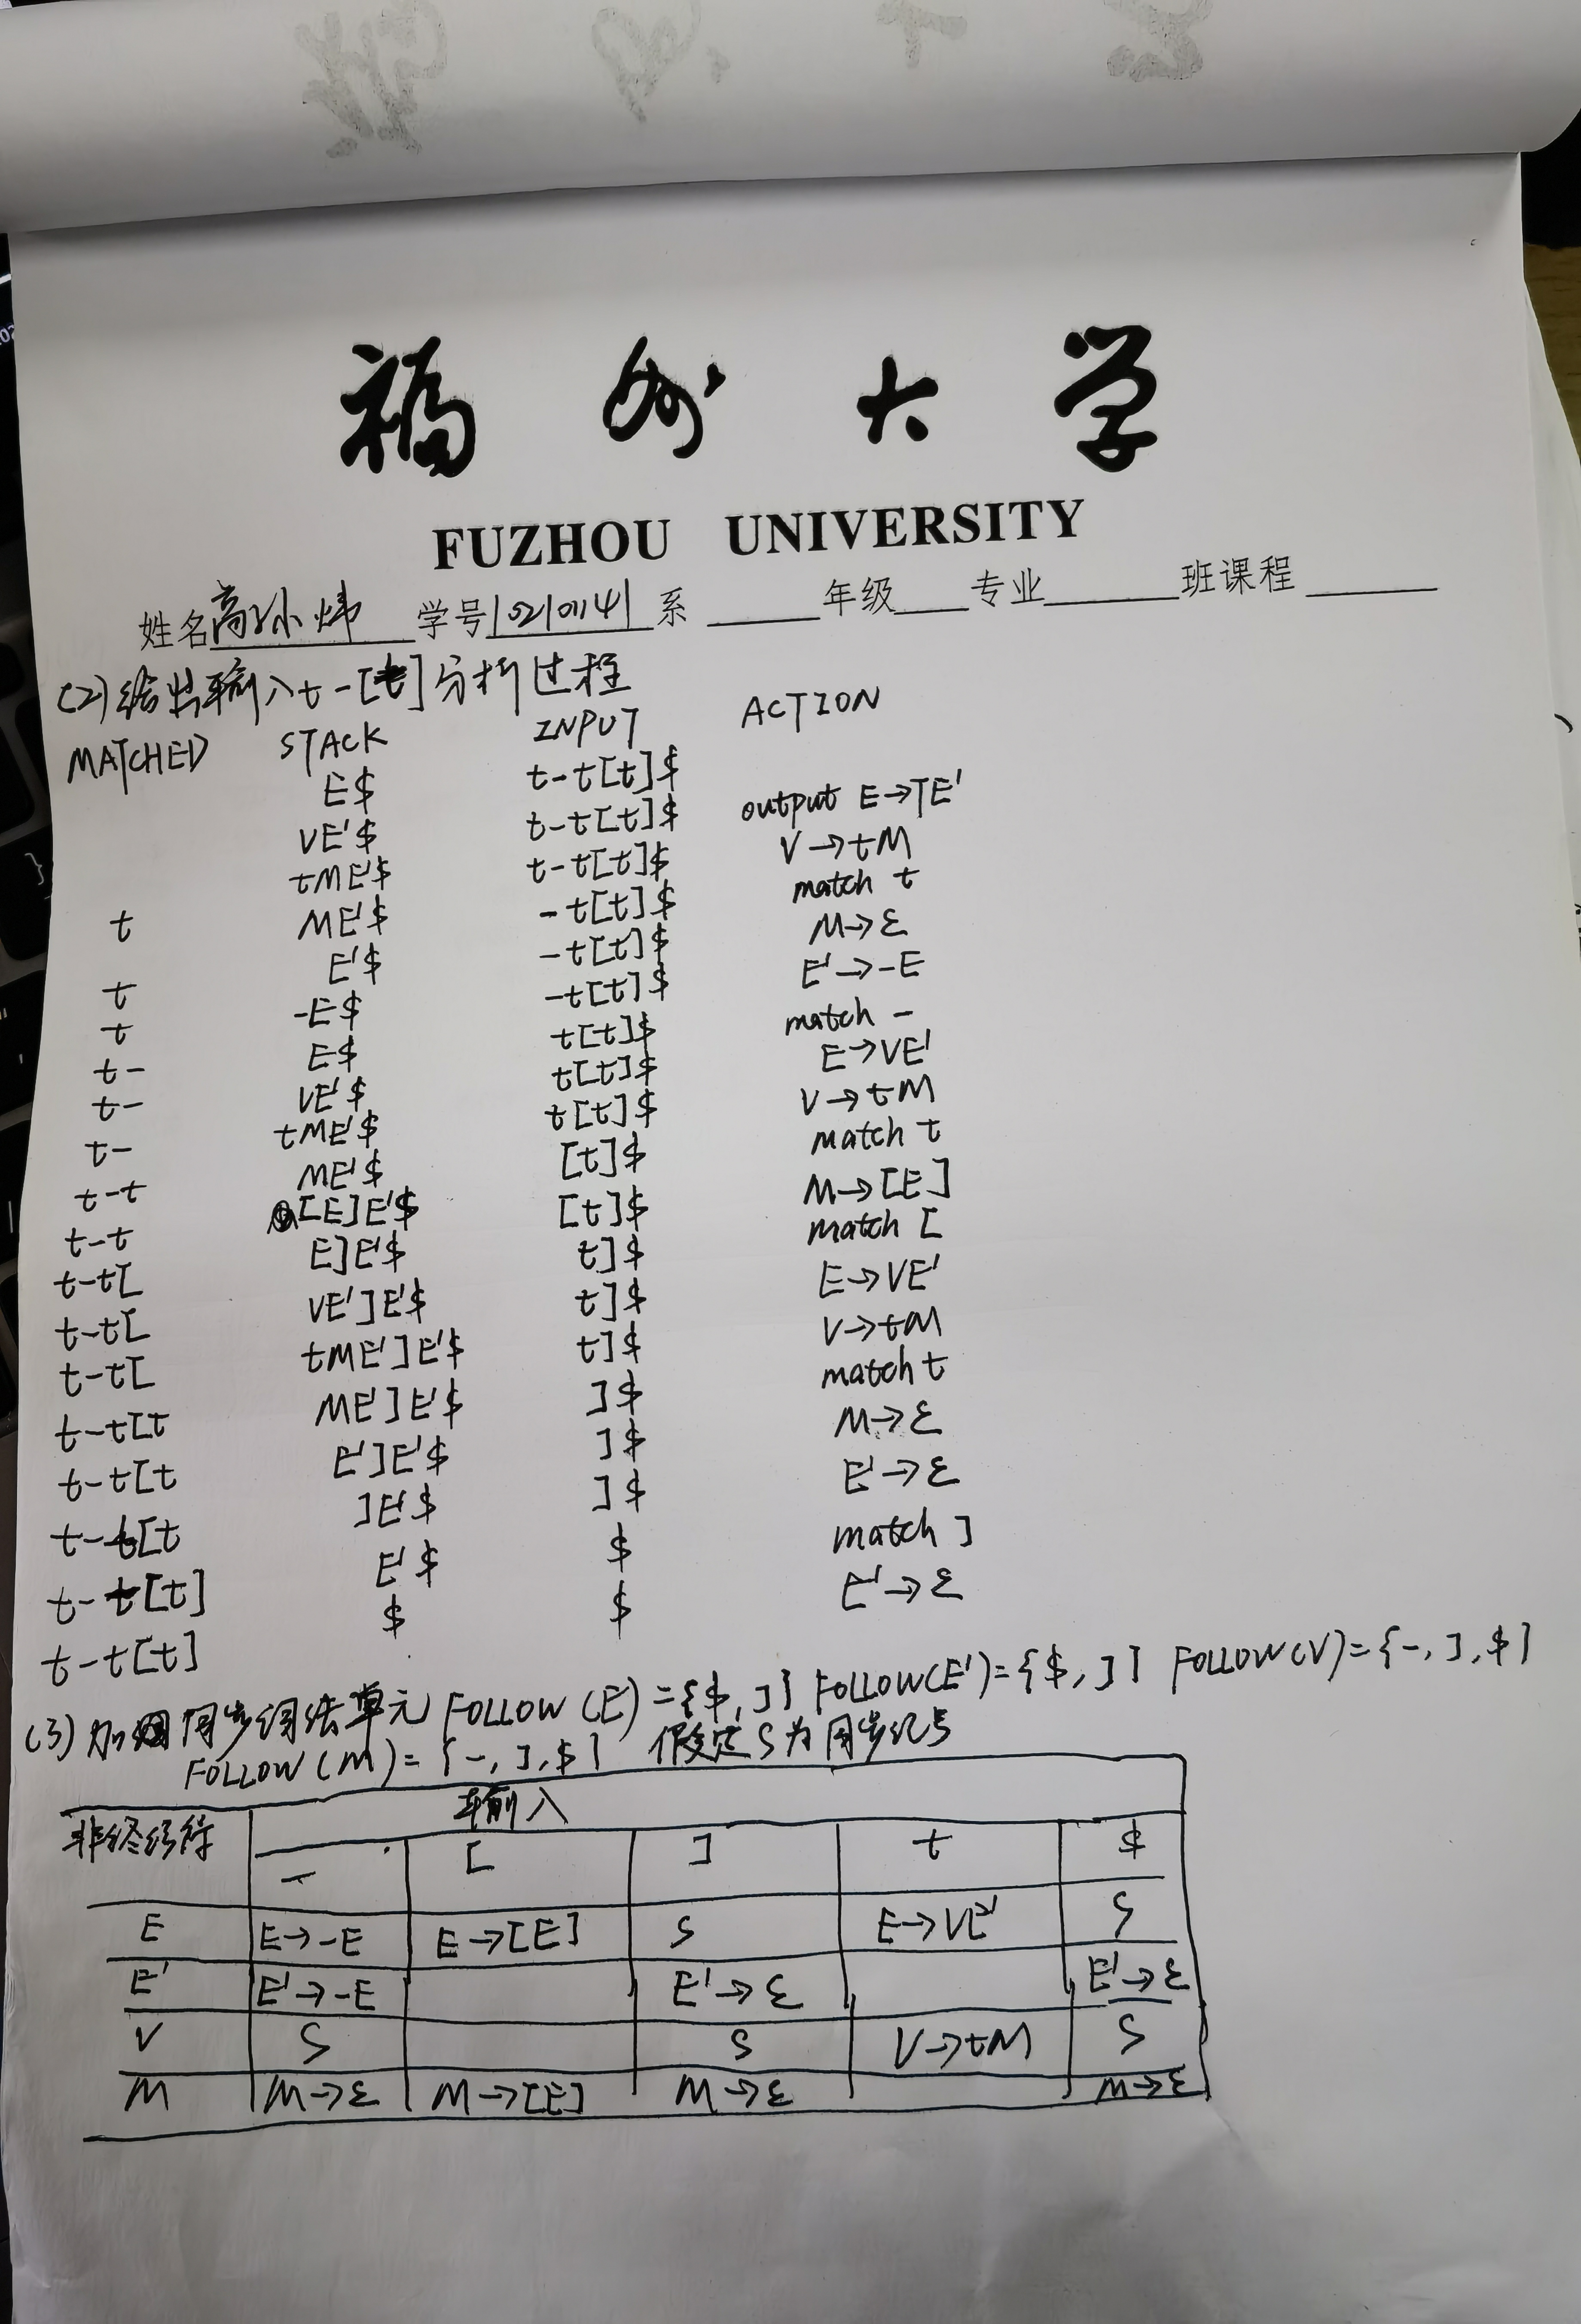 福州大学
FUZHOU UNIVERSITY
姓名 学号 系 年级 专业 班课程
(2)给出输入t-[t]分析过程
MATCHED STACK INPUT ACTION
E$ t-t[t]$
VE'$ t-t[t]$ output E→TE'
tME'$ t-t[t]$ V→tM
t ME'$ -t[t]$ match t
E'$ -t[t]$ M→ε
t -E$ -t[t]$ E'→-E
t E$ t[t]$ match -
t- VE'$ t[t]$ E→VE'
t- tME'$ t[t]$ V→tM
t- ME'$ [t]$ match t
t-t [E]E'$ [t]$ M→[E]
t-t E]E'$ t]$ match [
t-t[ VE']E'$ t]$ E→VE'
t-t[ tME']E'$ t]$ V→tM
t-t[ ME']E'$ ]$ match t
t-t[t E']E'$ ]$ M→ε
t-t[t ]E'$ ]$ E'→ε
t-t[t E'$ $ match ]
t-t[t] $ $ E'→ε
t-t[t]
(3)加 同步词法单元 FOLLOW(E)={$,]} FOLLOW(E')={$,]} FOLLOW(V)={-,],$}
FOLLOW(M)={-,],$} 假定S为同步记号
非终结符 输入
- [ ] t $
E E→-E E→[E] S E→VE' S
E' E'→-E E'→ε E'→ε
V S S V→tM S
M M→ε M→[E] M→ε M→ε